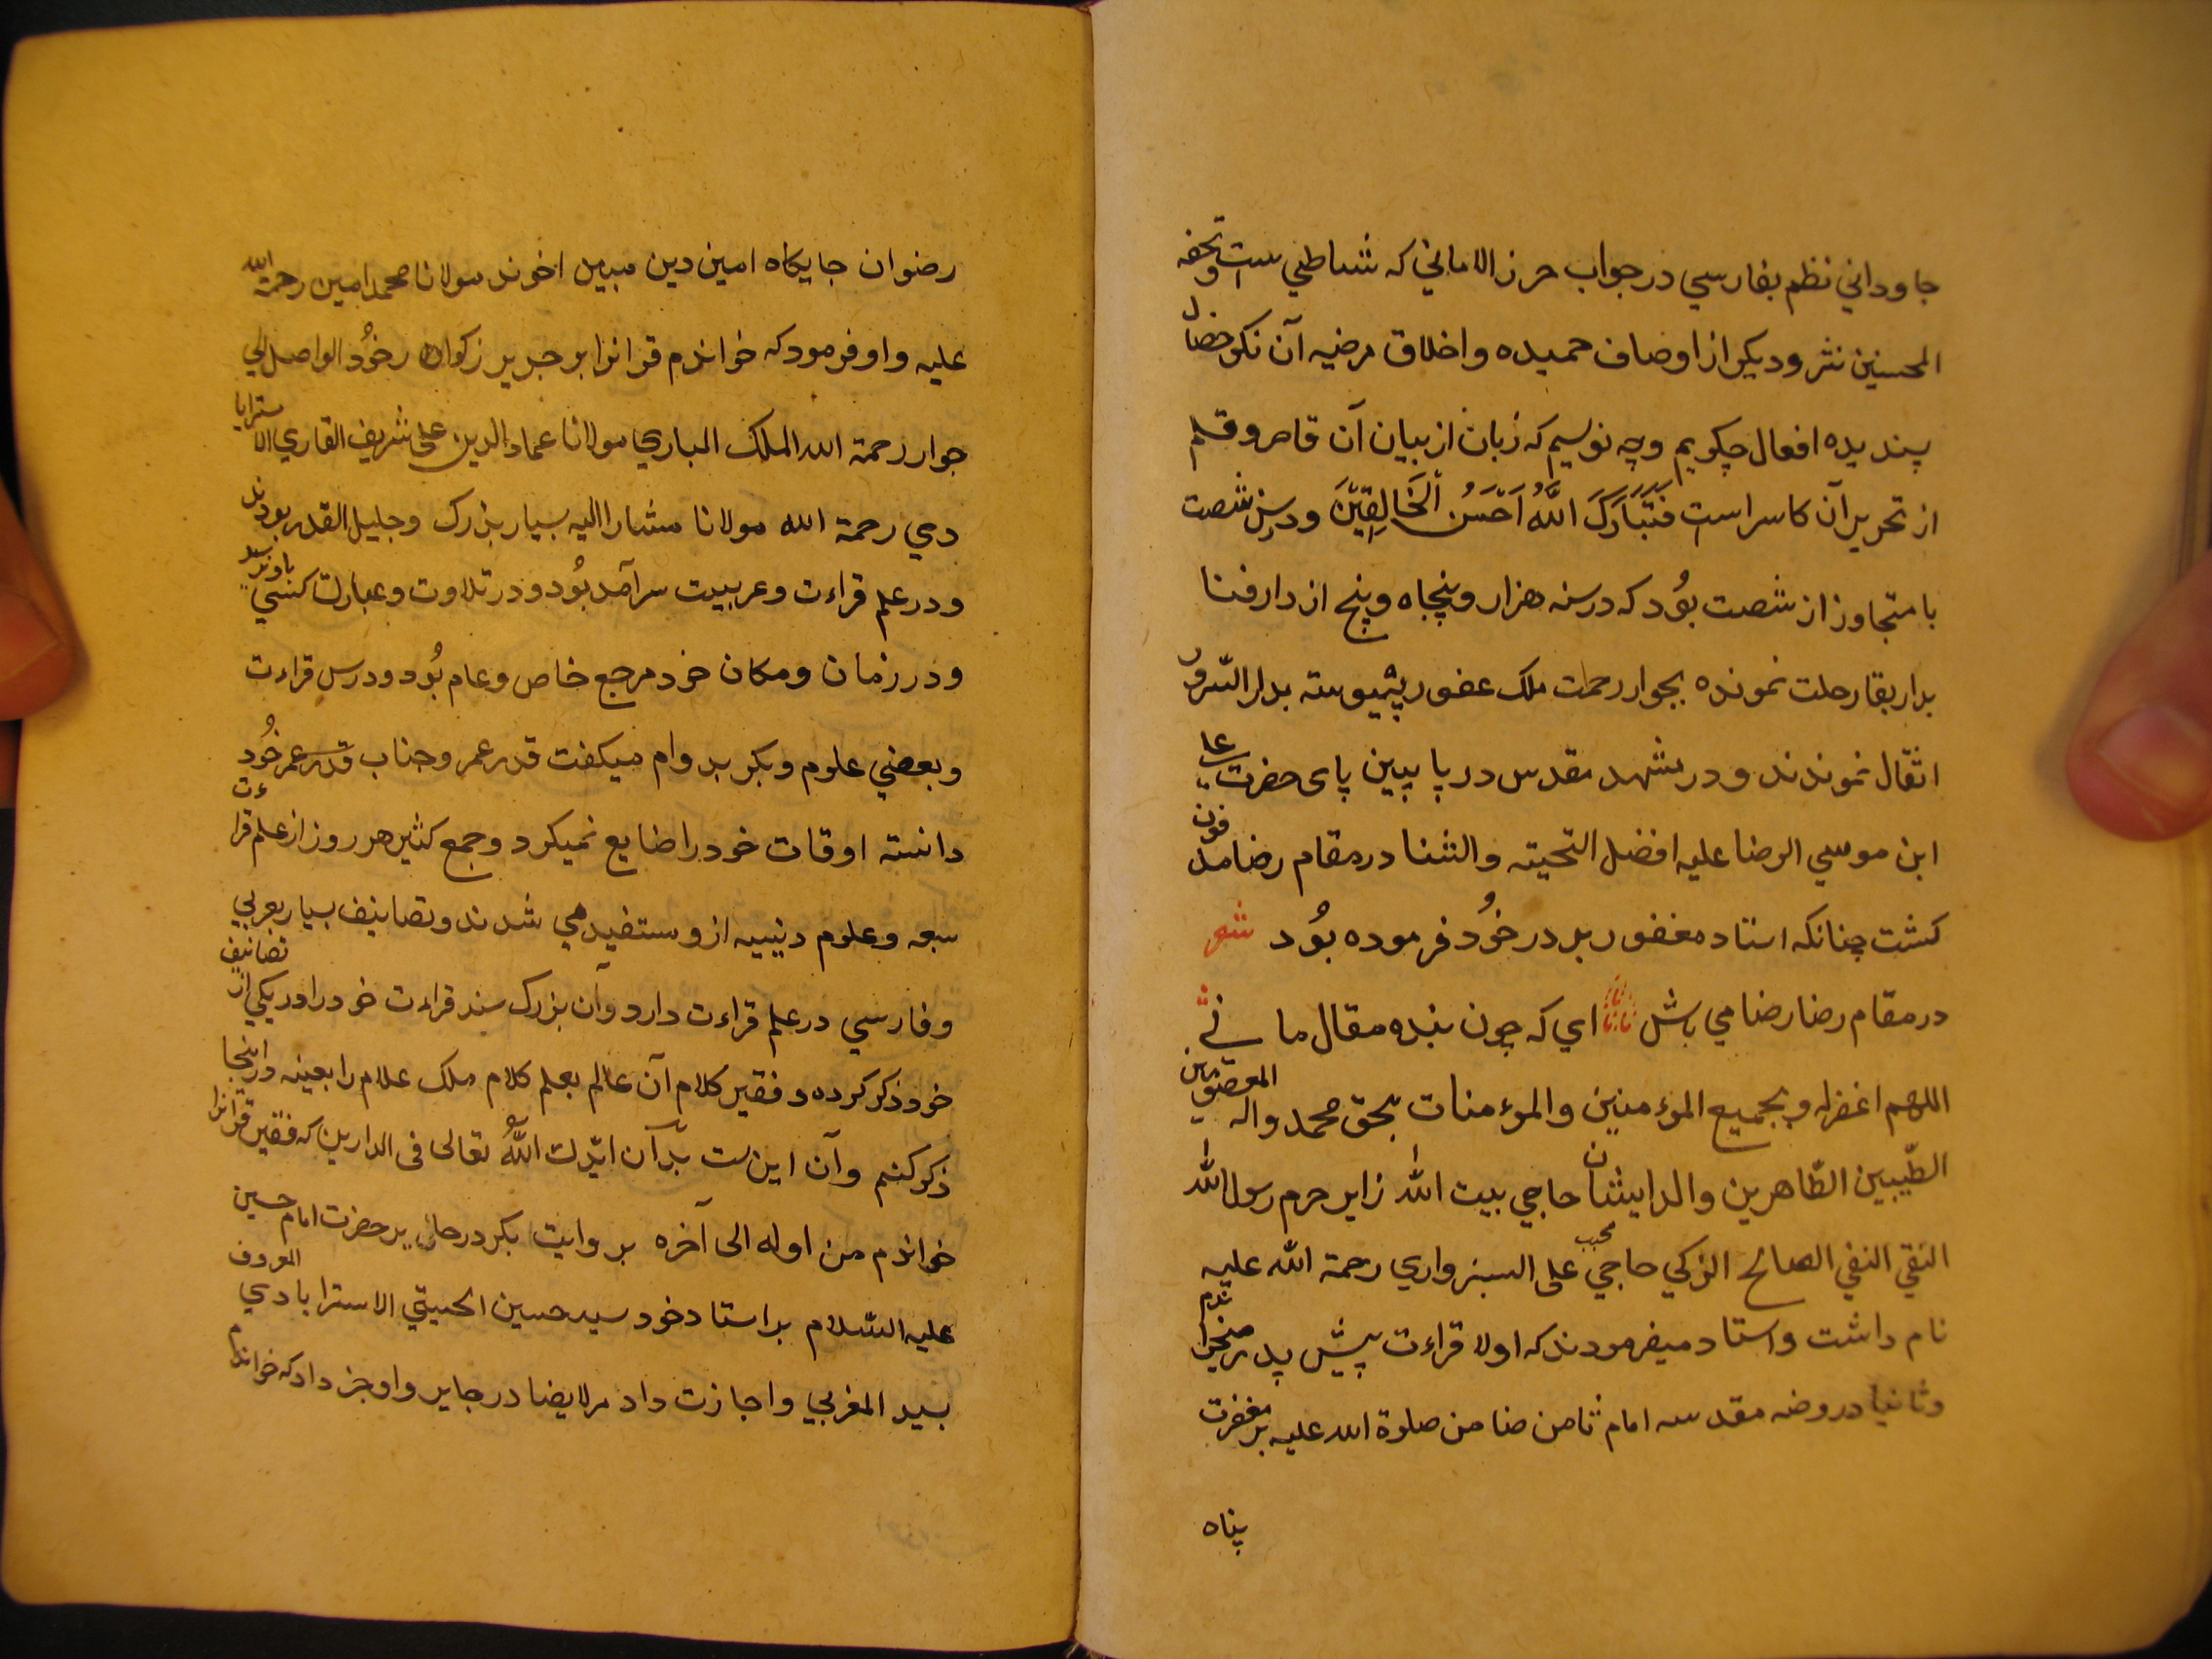 جاوداني نظم بفارسي در جواب حرز الاماني كه شاطبي ست وتحفه
المحسنين نثر وديكر از اوصاف حميده واخلاق مرضيه آن نكو خصال
پنديده افعال چكويم وچه نويسم كه زبان از بيان آن قاصر وقلم
از تحرير آن كاسر است فَتَبَارَكَ اللَّهُ اَحْسَنُ الْخَالِقِيْنَ ودر سن شصت
يا متجاوز از شصت بُود كه در سنه هزار وپنجاه وپنج از دار فنا
بدار بقا رحلت نمونده بجوار رحمت ملك غفور پيوسته بدار السّرور
انقال نموندند ودر مشهد مقدس در پايين پاى حضرت على
ابن موسي الرضا عليه افضل التحيته والثنا در مقام رضا مدفون
كشت چنانكه استاد مغفور بدر خُود فرموده بُود شعر
در مقام رضا رضا مي باش اي كه چون بنده مقال مائي
اللهم اغفر له وبجميع المؤمنين والمؤمنات بحق محمد واله المعصومين
الطّيبين الطّاهرين والد ايشان حاجي بيت الله زاير حرم رسول الله
التقي النقي الصالح الزكي حاجي محب على السبزواري رحمة الله عليه
نام داشت واستاد ميفرمودند كه اولا قراءت پيش پدر ميخواندم
وثانيا در وضه مقدسه امام ثامن ضامن صلوة الله عليه بر مغفرت
پناه
رضوان جايكاه امين دين مبين اخوند مولانا محمد امين رحمة الله
عليه واو فرمود كه خواندم قرانرا بر جد پدر خُود الواصل الي
جوار رحمة الله الملك الباري مولانا عماد الدين على شريف القاري الاسترابا
دي رحمة الله مولانا مشار اليه بسيار بزرك وجليل القدر بودند
ودر علم قراءت وعربيت سرآمد بُود ودر تلاوت وعبارت كسي باو نرسيد
ودر زمان ومكان خود مرجع خاص وعام بُود ودرس قراءت
وبعضي علوم ديكر بر دوام ميكفت قدر عمر وجناب قدر عمر خُود
دانسته اوقات خود را ضايع نميكرد وجمع كثير هر روز از علم قراءت
سبعه وعلوم دينيه ازو مستفيد مي شدند وتصانيف بسيار بعربي
وفارسي در علم قراءت دارد وآن بزرك سند قراءت خود را در يكي از تصانيف
خود ذكر كرده وفقير كلام آن عالم بعلم كلام ملك علام را بعينه در اينجا
ذكر كنم وآن اين ست بدآن ايّدك اللّه تعالى فى الدارين كه فقير قرانرا
خواندم من اوله الى آخره بروايت بكر در حاير حضرت امام حسين
عليه السّلام بر استاد خود سيد حسين الحسيني الاسترابادي المعروف
بسيد المغربي واجازت داد مرا ايضا در حاير واو خبر داد كه خواندم